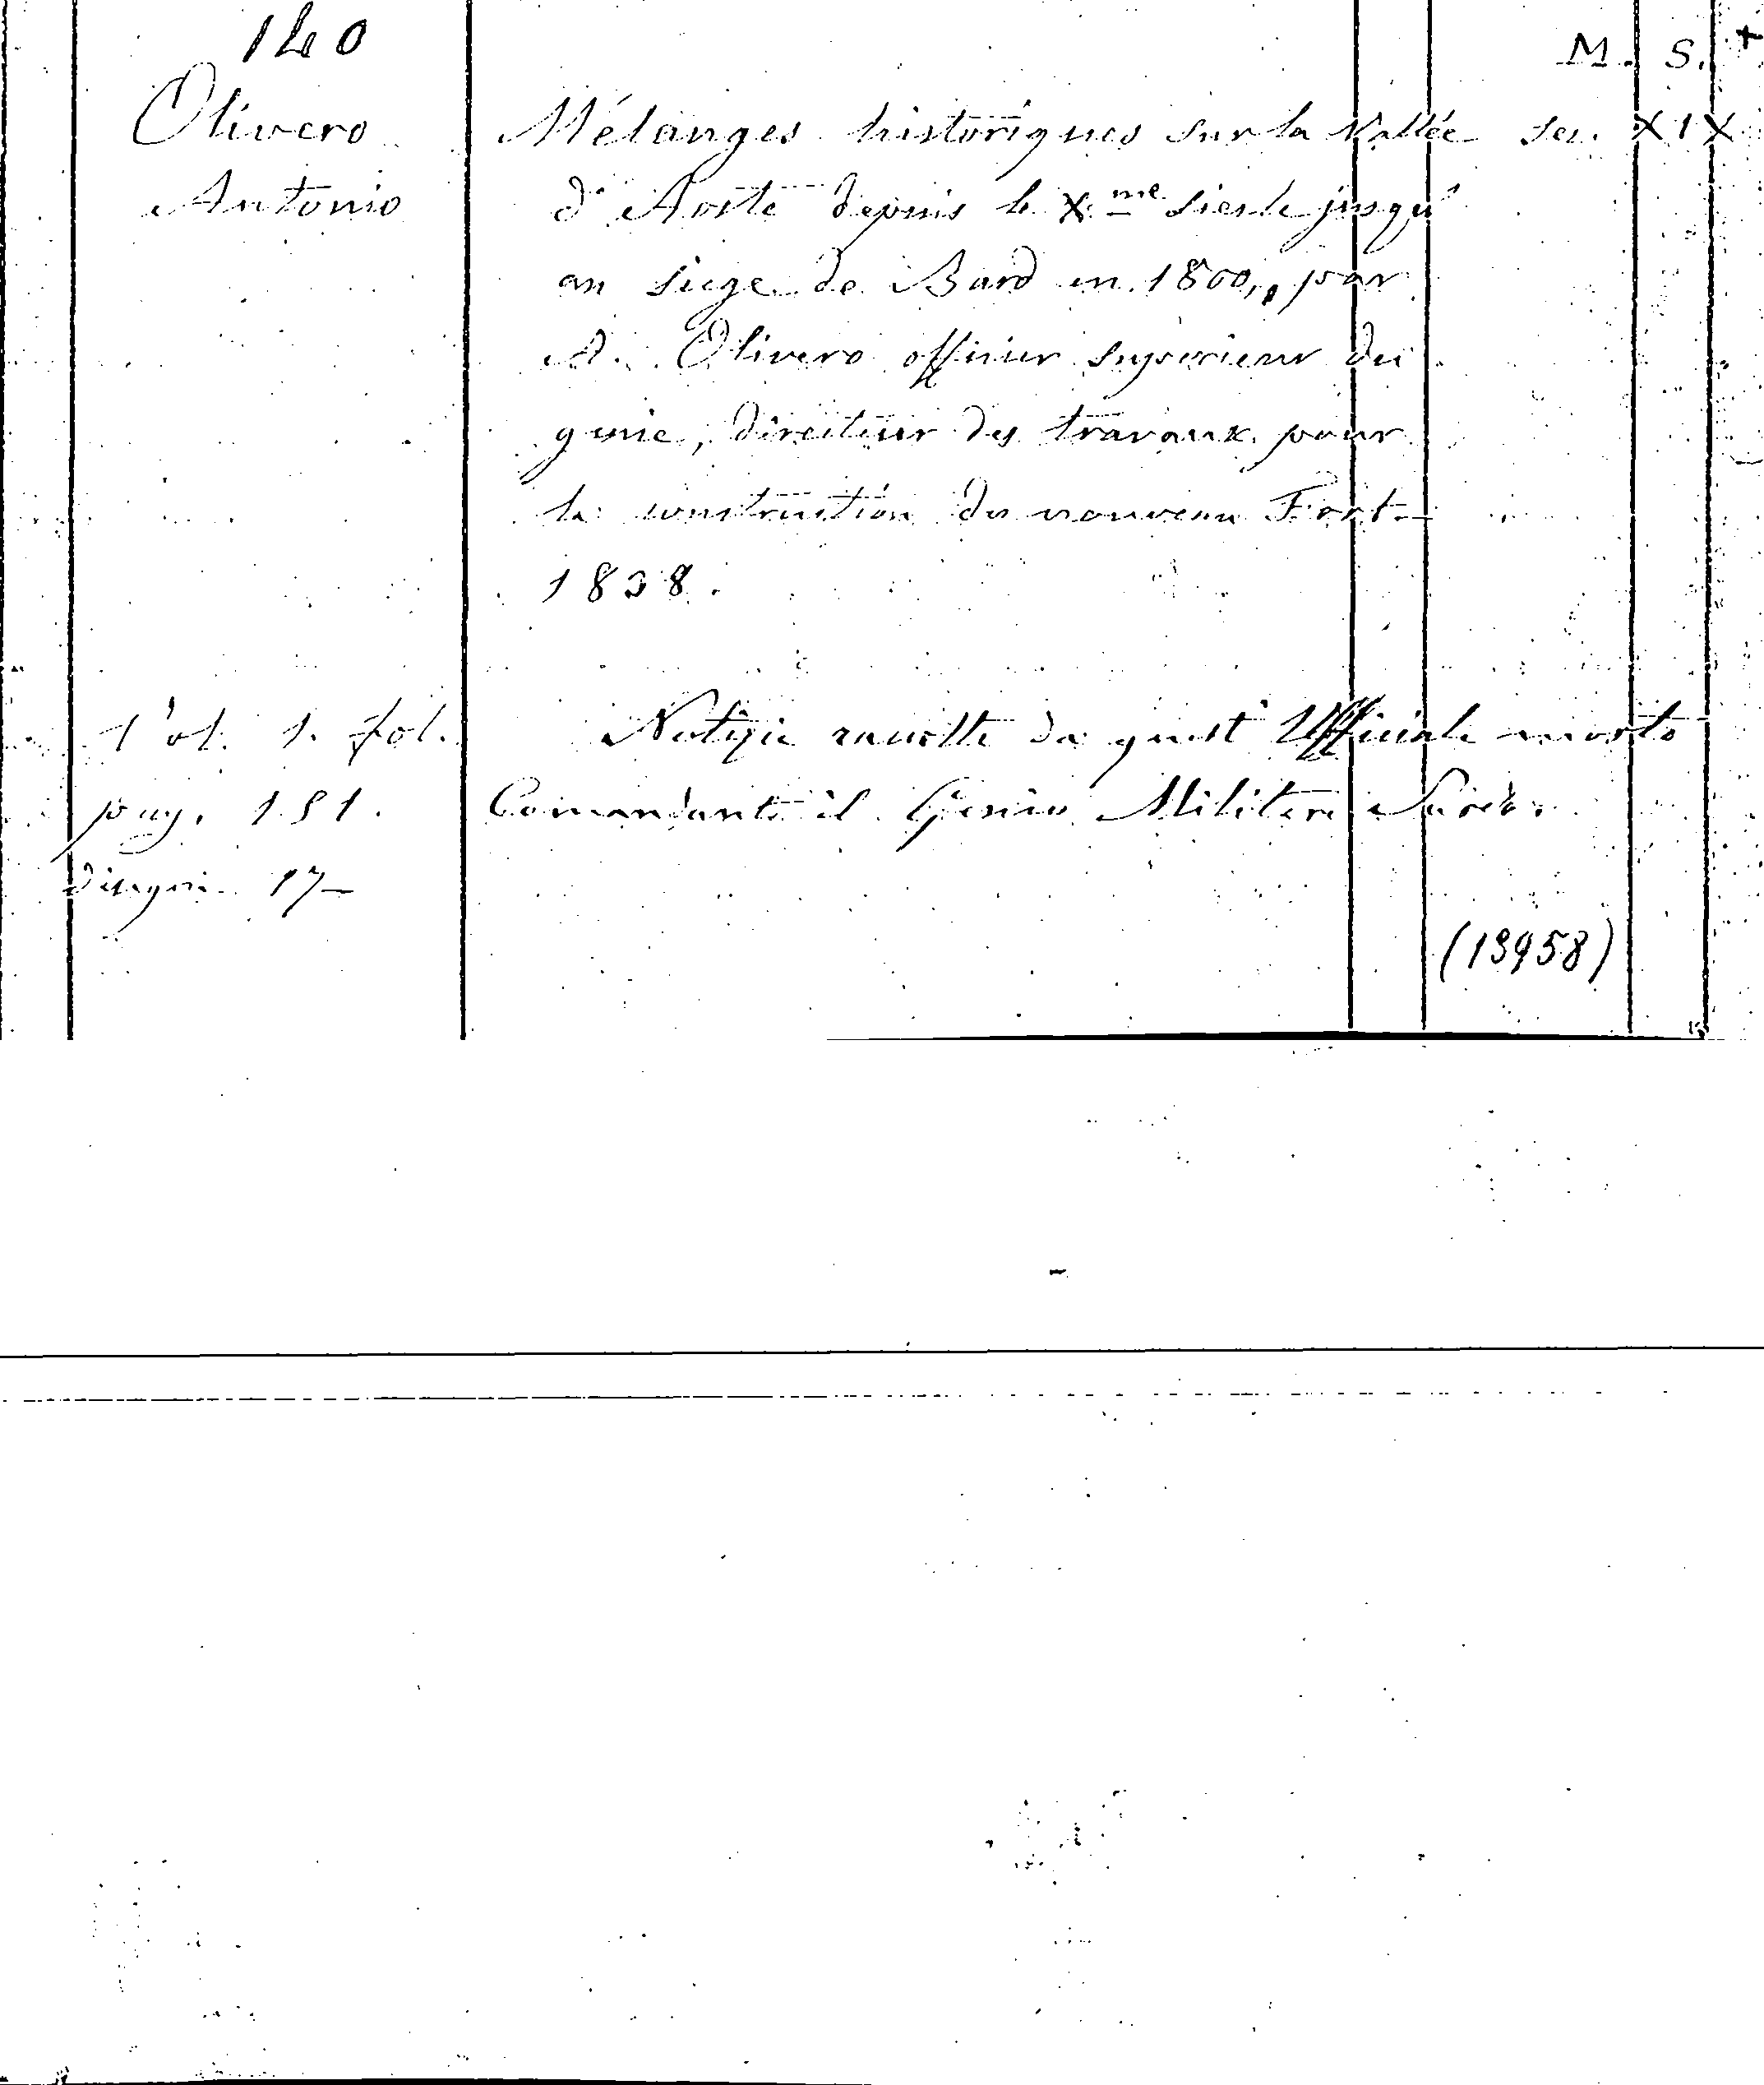 140
M. S. +
Olivero
Antonio
Mélanges historiques sur la Vallée
sec. XIX
d'Aoste depuis le X.me Siecle jusqu'
au siege de Bard en 1800, par
A. Olivero officier superieur du
genie, directeur des travaux pour
la construction du nouveau Fort
1838.
Vol. 1. fol.
pag. 181.
disegni 17
Notizie raccolte da quest' Ufficiale morto
Comandante il Genio Militare Sardo.
(13958)